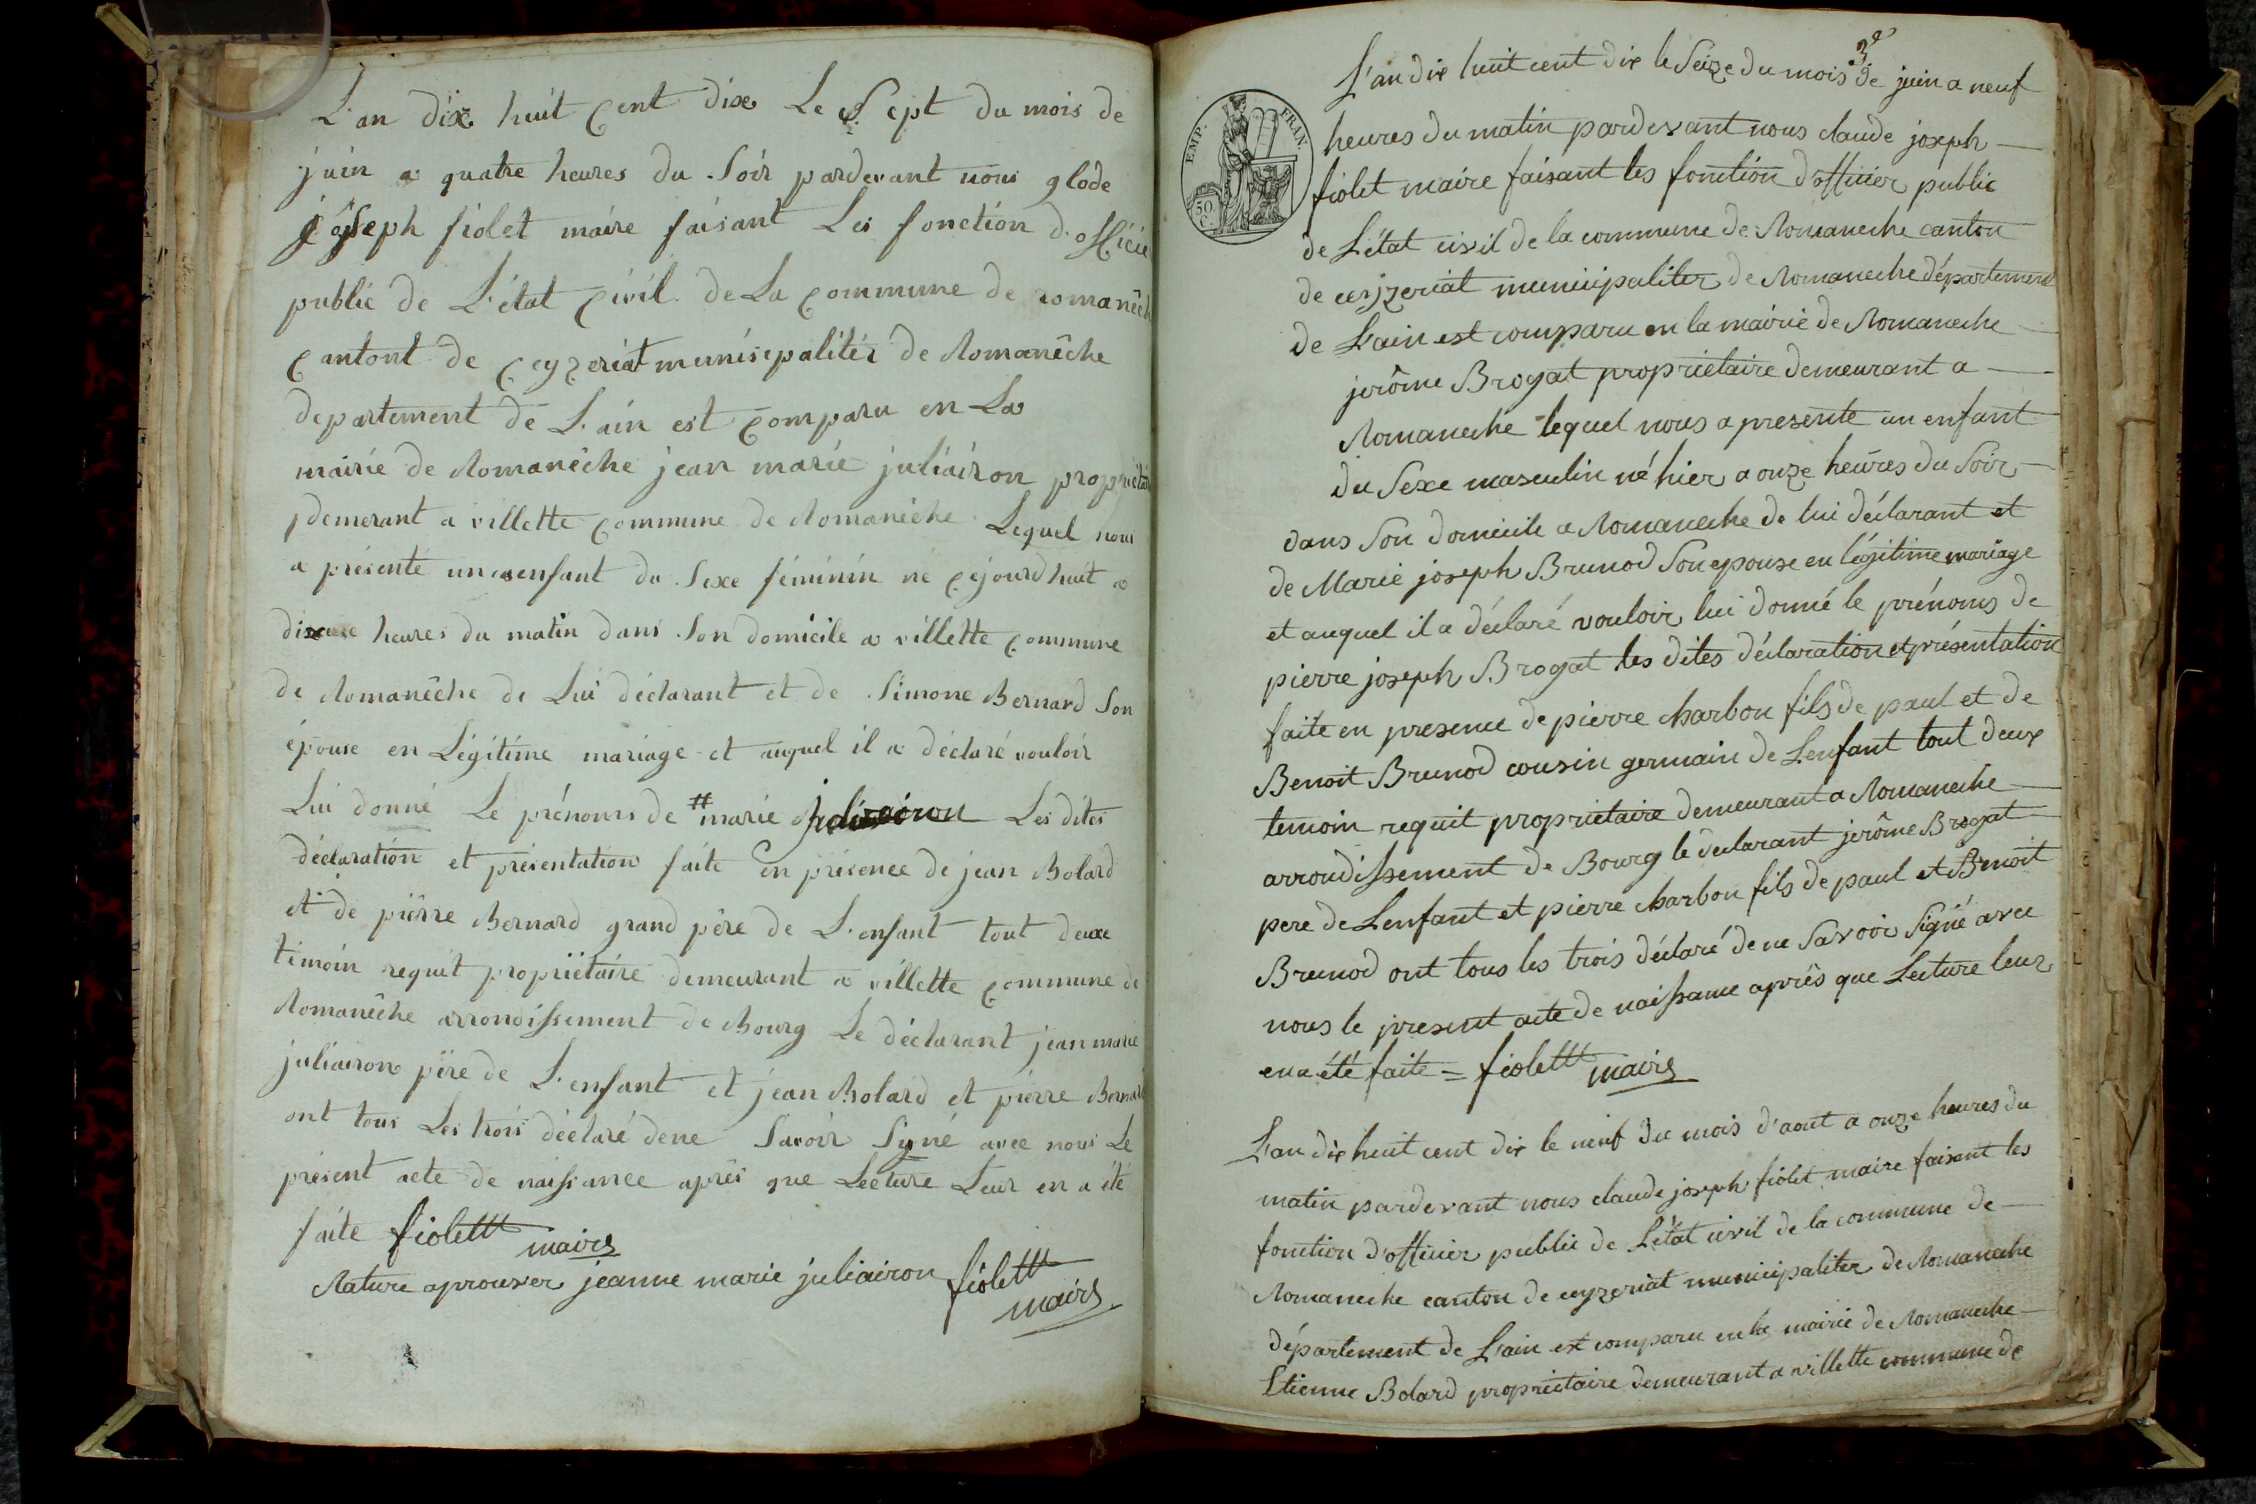 L'an dix huit cent dix Le Sept du mois de
juin a quatre heures du Soir pardevant nous glode
joseph fiolet maire faisant Les fonction d'officie
public de L'état civil de La commune de romanêch
cantont de ceyzeriat munisipalitér de Romanêche
departement de L'ain est comparu en La
mairie de Romanêche jean marie juliairon propriétair
demerant a villette commune de Romanêche Lequel nous
a présenté un enfant du Sexe féminin né cejourdhuit a
dix heures du matin dans Son domicile a villette commune
de Romanêche de Lui déclarant et de Simone Bernard Son
épouse en Légitime mariage et auquel il a déclaré vouloir
Lui donné Le prénoms de # marie juliairon Les dites
déclaration et présentation faite en présence de jean Bolard
et de pierre Bernard grand pére de L'enfant tout deux
timoin requit propriëtaire demeurant a villette commune de
Romanêche arrondissement de Bourg Le déclarant jean marie
juliairon pére de L'enfant et jean Bolard et pierre Bernard
ont tous Les trois déclaré de ne Savoir Signé avec nous Le
présent acte de naissance aprés que Lecture Leur en a été
faite fiolet maire
Rature aprouver jeanne marie juliairon fiolet
maire
3e
L'an dix huit cent dix le Seize du mois de juin a neuf
EMP. FRAN.
50 C.
heures du matin pardevant nous claude joseph
fiolet maire faisant les fonction d'officier public
de L'état civil de la commune de Romaneche canton
de ceyzeriat municipaliter de Romaneche département
de L'ain est comparu en la mairie de Romaneche
jerôme Brogat propriétaire demeurant a
Romaneche lequel nous a presenté un enfant
du Sexe masculin né hier a onze heures du Soir
dans Son domicile a Romaneche de lui déclarant et
de Marie joseph Brunod Son epouse en légitime mariage
et auquel il a déclaré vouloir lui donné le prénoms de
pierre joseph Brogat les dites déclaration et présentation
faite en presence de pierre charbon fils de paul et de
Benoit Brunod cousin germain de L'enfant tout deux
temoin requit propriétaire demeurant a Romaneche
arrondissement de Bourg le déclarant jerôme Brogat
pere de L'enfant et pierre charbon fils de paul et Benoit
Brunod ont tous les trois déclaré de ne Savoir Signé avec
nous le present acte de naissance aprés que Lecture leur
en a été faite = fiolet maire
L'an dix huit cent dix le neuf du mois d'aout a onze heures du
matin pardevant nous claude joseph fiolet maire faisant les
fonction d'officier public de L'état civil de la commune de
Romaneche canton de ceyzeriat municipaliter de Romaneche
département de L'ain est comparu en la mairie de Romaneche
Etienne Bolard propriétaire demeurant a villette commune de